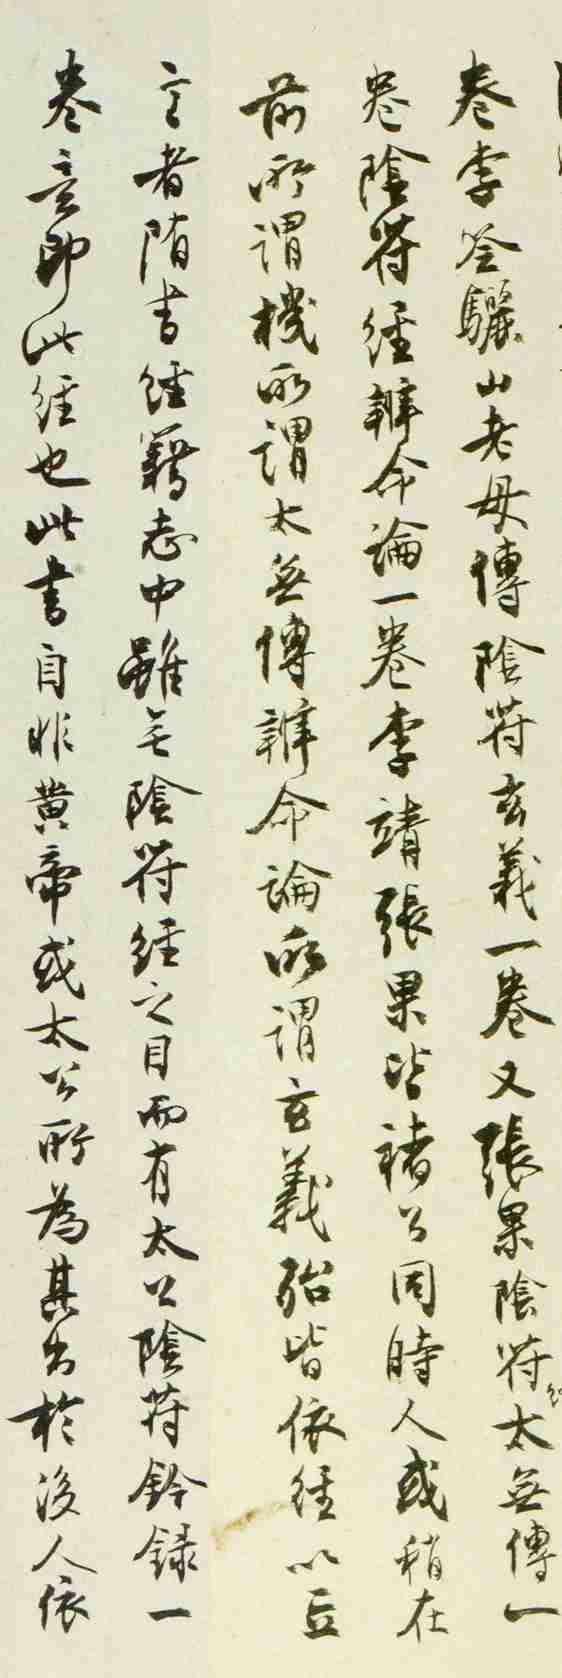 卷李筌驪山老母傳陰符玄義一卷又張果陰符經太無傳一
卷陰符經辨命論一卷李靖張果皆褚公同時人或稍在
前所謂機所謂太無傳辨命論所謂玄義殆皆依經以立
言者隋書經籍志中雖無陰符經之目而有太公陰符鈐錄一
卷意即此經也此書自非黃帝或太公所為其出於後人依